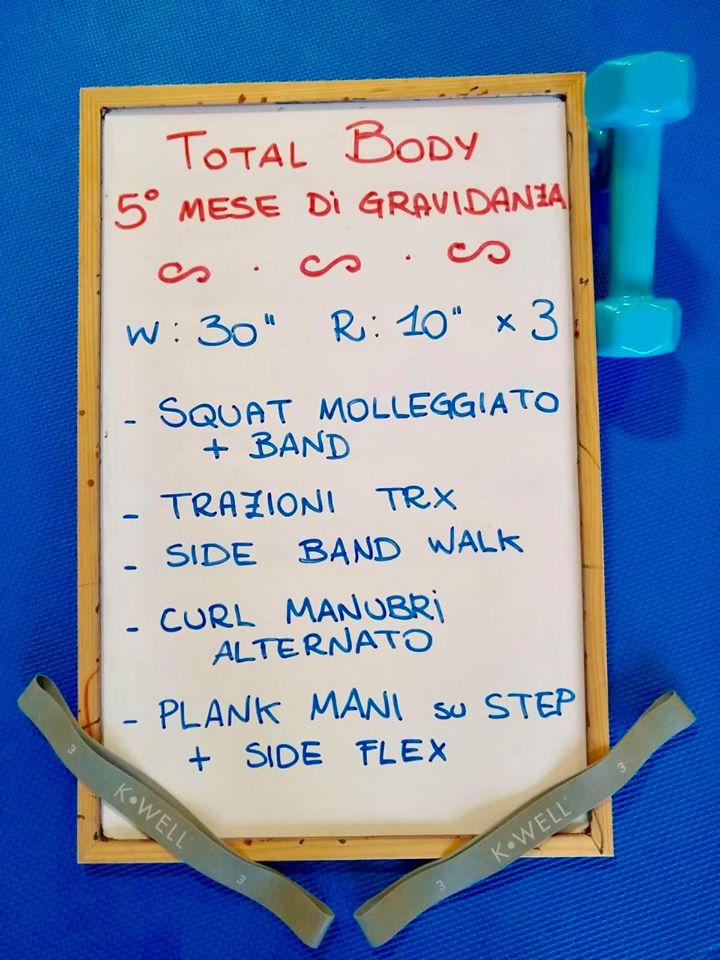 TOTAL BODY
5° MESE Di GRAVIDANZA
W: 30" R: 10" x 3
- SQUAT MOLLEGGIATO
+ BAND
- TRAZIONI TRX
- SIDE BAND WALK
- CURL MANUBRi
ALTERNATO
- PLANK MANI su STEP
+ SIDE FLEX
3 K•WELL 3
3 K•WELL 3